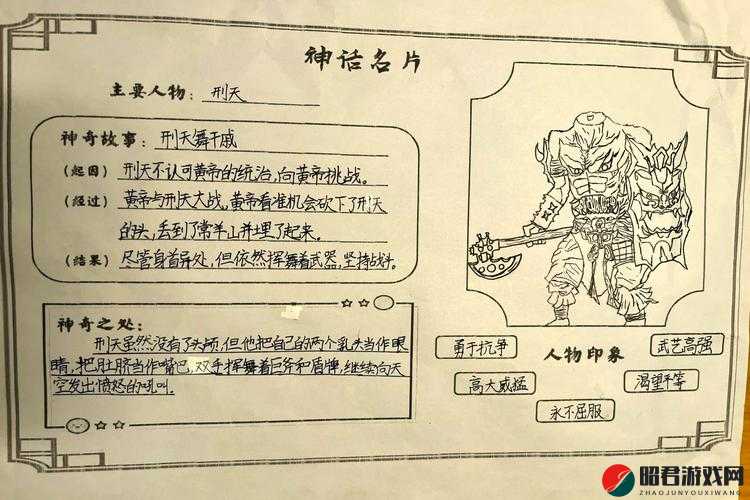 神话名片
主要人物：刑天
神奇故事：刑天舞干戚
（起因）刑天不认可黄帝的统治，向黄帝挑战。
（经过）黄帝与刑天大战，黄帝看准机会砍下了刑天
的头，丢到了常羊山并埋了起来。
（结果）尽管身首异处，但依然挥舞着武器，坚持战斗。
神奇之处：
刑天虽然没有了头颅，但他把自己的两个乳头当作眼
睛，把肚脐当作嘴巴，双手挥舞着巨斧和盾牌，继续向天
空发出愤怒的吼叫。
人物印象
勇于抗争
武艺高强
高大威猛
渴望平等
永不屈服
昭君游戏网
ZHAOJUNYOUXIWANG